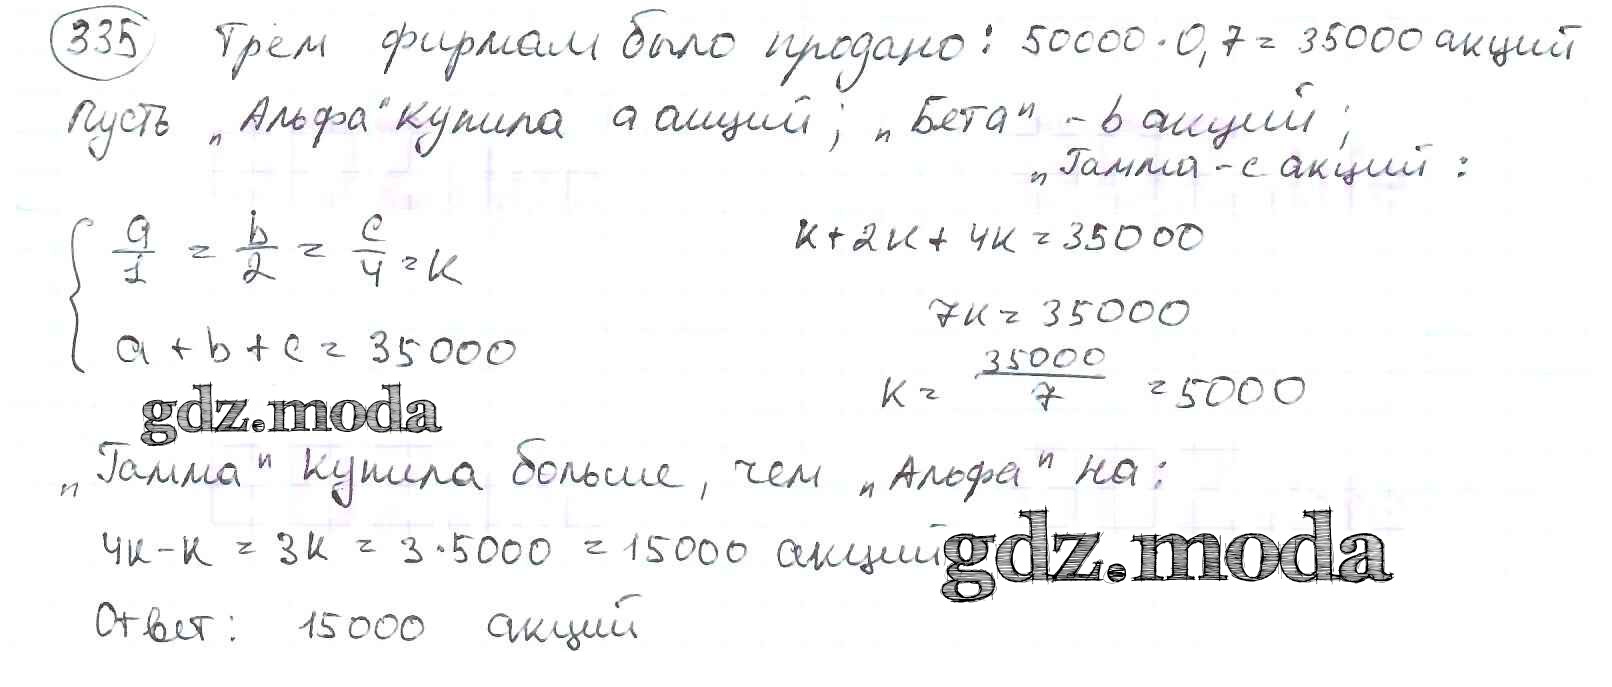 335 Трём фирмам было продано: 50000·0,7=35000 акций
Пусть „Альфа" купила a акций; „Бета" - b акций;
„Гамма - c акций:
a/1 = b/2 = c/4 = k
a + b + c = 35000
k+2k+4k=35000
7k=35000
k= 35000/7 =5000
gdz.moda
„Гамма" купила больше, чем „Альфа" на:
4k-k = 3k = 3·5000 = 15000 акций
gdz.moda
Ответ: 15000 акций